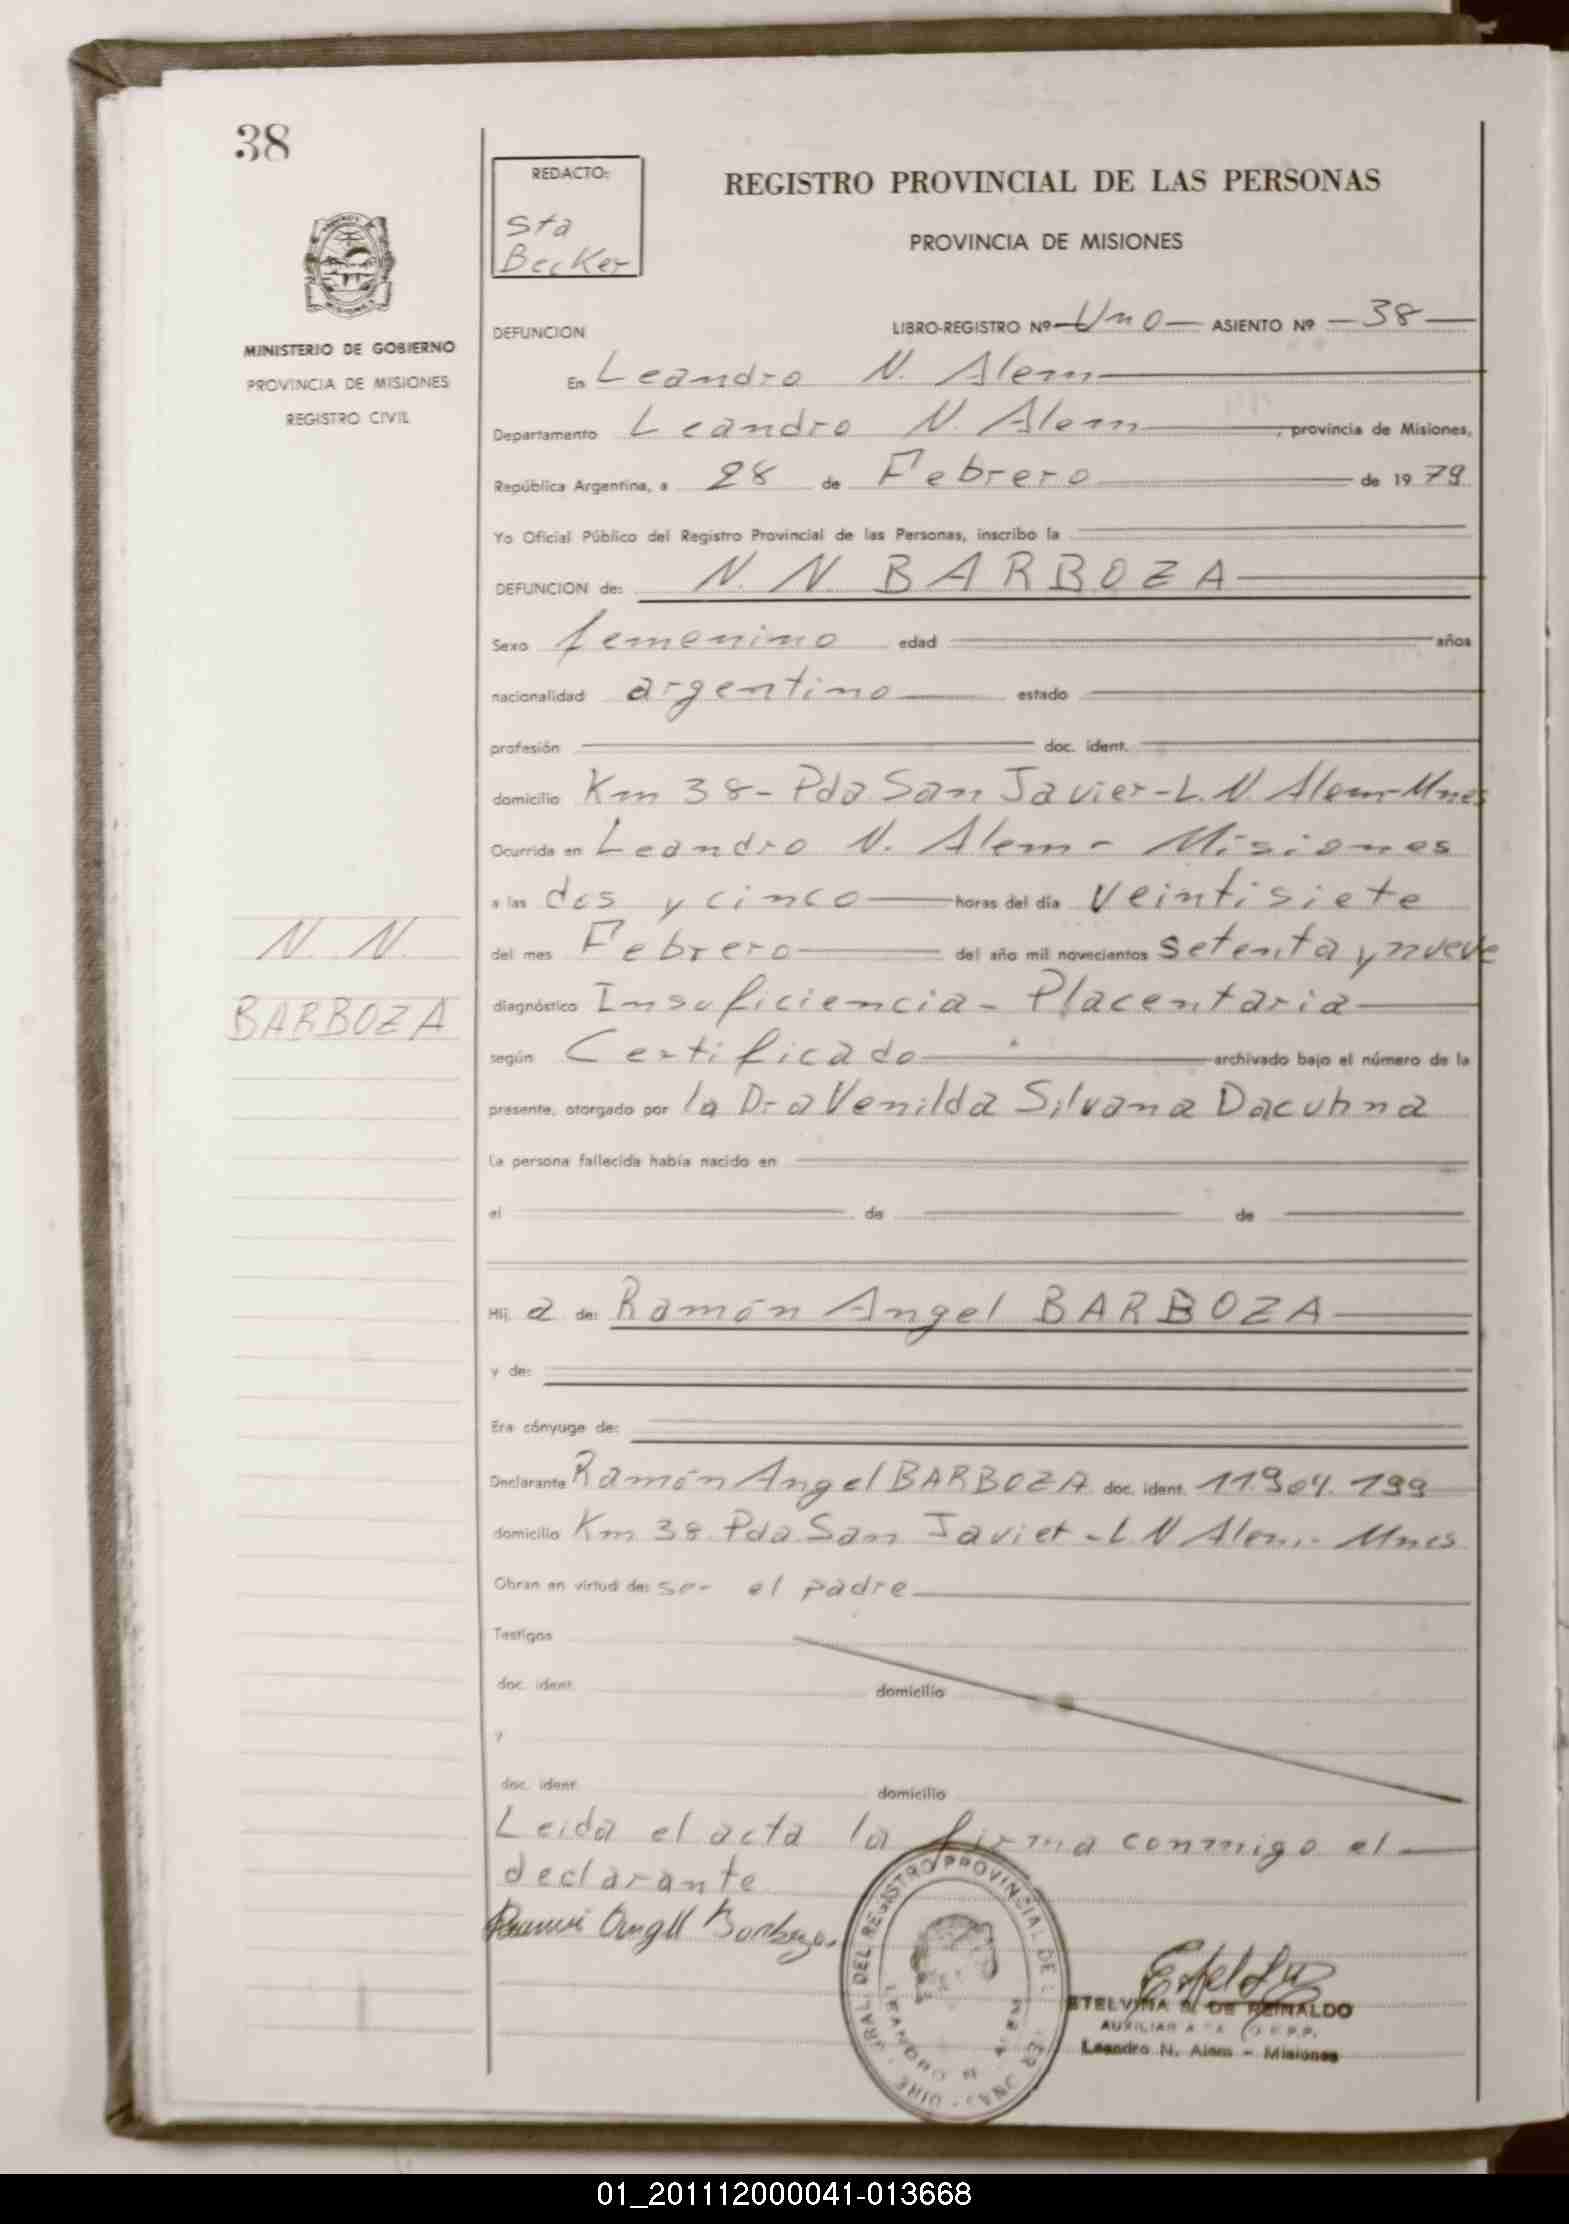 38
REDACTO:
Sta
Becker
REGISTRO PROVINCIAL DE LAS PERSONAS
PROVINCIA DE MISIONES
MINISTERIO DE GOBIERNO
PROVINCIA DE MISIONES
REGISTRO CIVIL
DEFUNCION LIBRO-REGISTRO Nº Uno ASIENTO Nº 38
En Leandro N. Alem
Departamento Leandro N. Alem, provincia de Misiones,
República Argentina, a 28 de Febrero de 1979
Yo Oficial Público del Registro Provincial de las Personas, inscribo la
DEFUNCION de: N. N BARBOZA
Sexo femenino edad años
nacionalidad argentino estado
profesión doc. ident.
domicilio Km 38- Pda San Javier-L.N. Alem-Mnes
Ocurrida en Leandro N. Alem- Misiones
a las dos y cinco horas del día veintisiete
del mes Febrero del año mil novecientos setenta y nueve
diagnóstico Insuficiencia- Placentaria
según Certificado archivado bajo el número de la
presente, otorgado por la Dra Venilda Silvana Dacuhna
La persona fallecida había nacido en
el de de
Hij a de: Ramón Angel BARBOZA
y de:
Era cónyuge de:
Declarante Ramón Angel BARBOZA doc. ident. 11.904.199
domicilio Km 38 Pda San Javier -L N Alem.- Mnes
Obran en virtud de: ser el padre
Testigos
doc. ident. domicilio
y
doc. ident. domicilio
Leida el acta la firma conmigo el
declarante
N. N.
BARBOZA
DEL REGISTRO PROVINCIAL DE
LEANDRO N.
ETELVINA DE REINALDO
AUXILIAR
Leandro N. Alem - Misiones
01_201112000041-013668